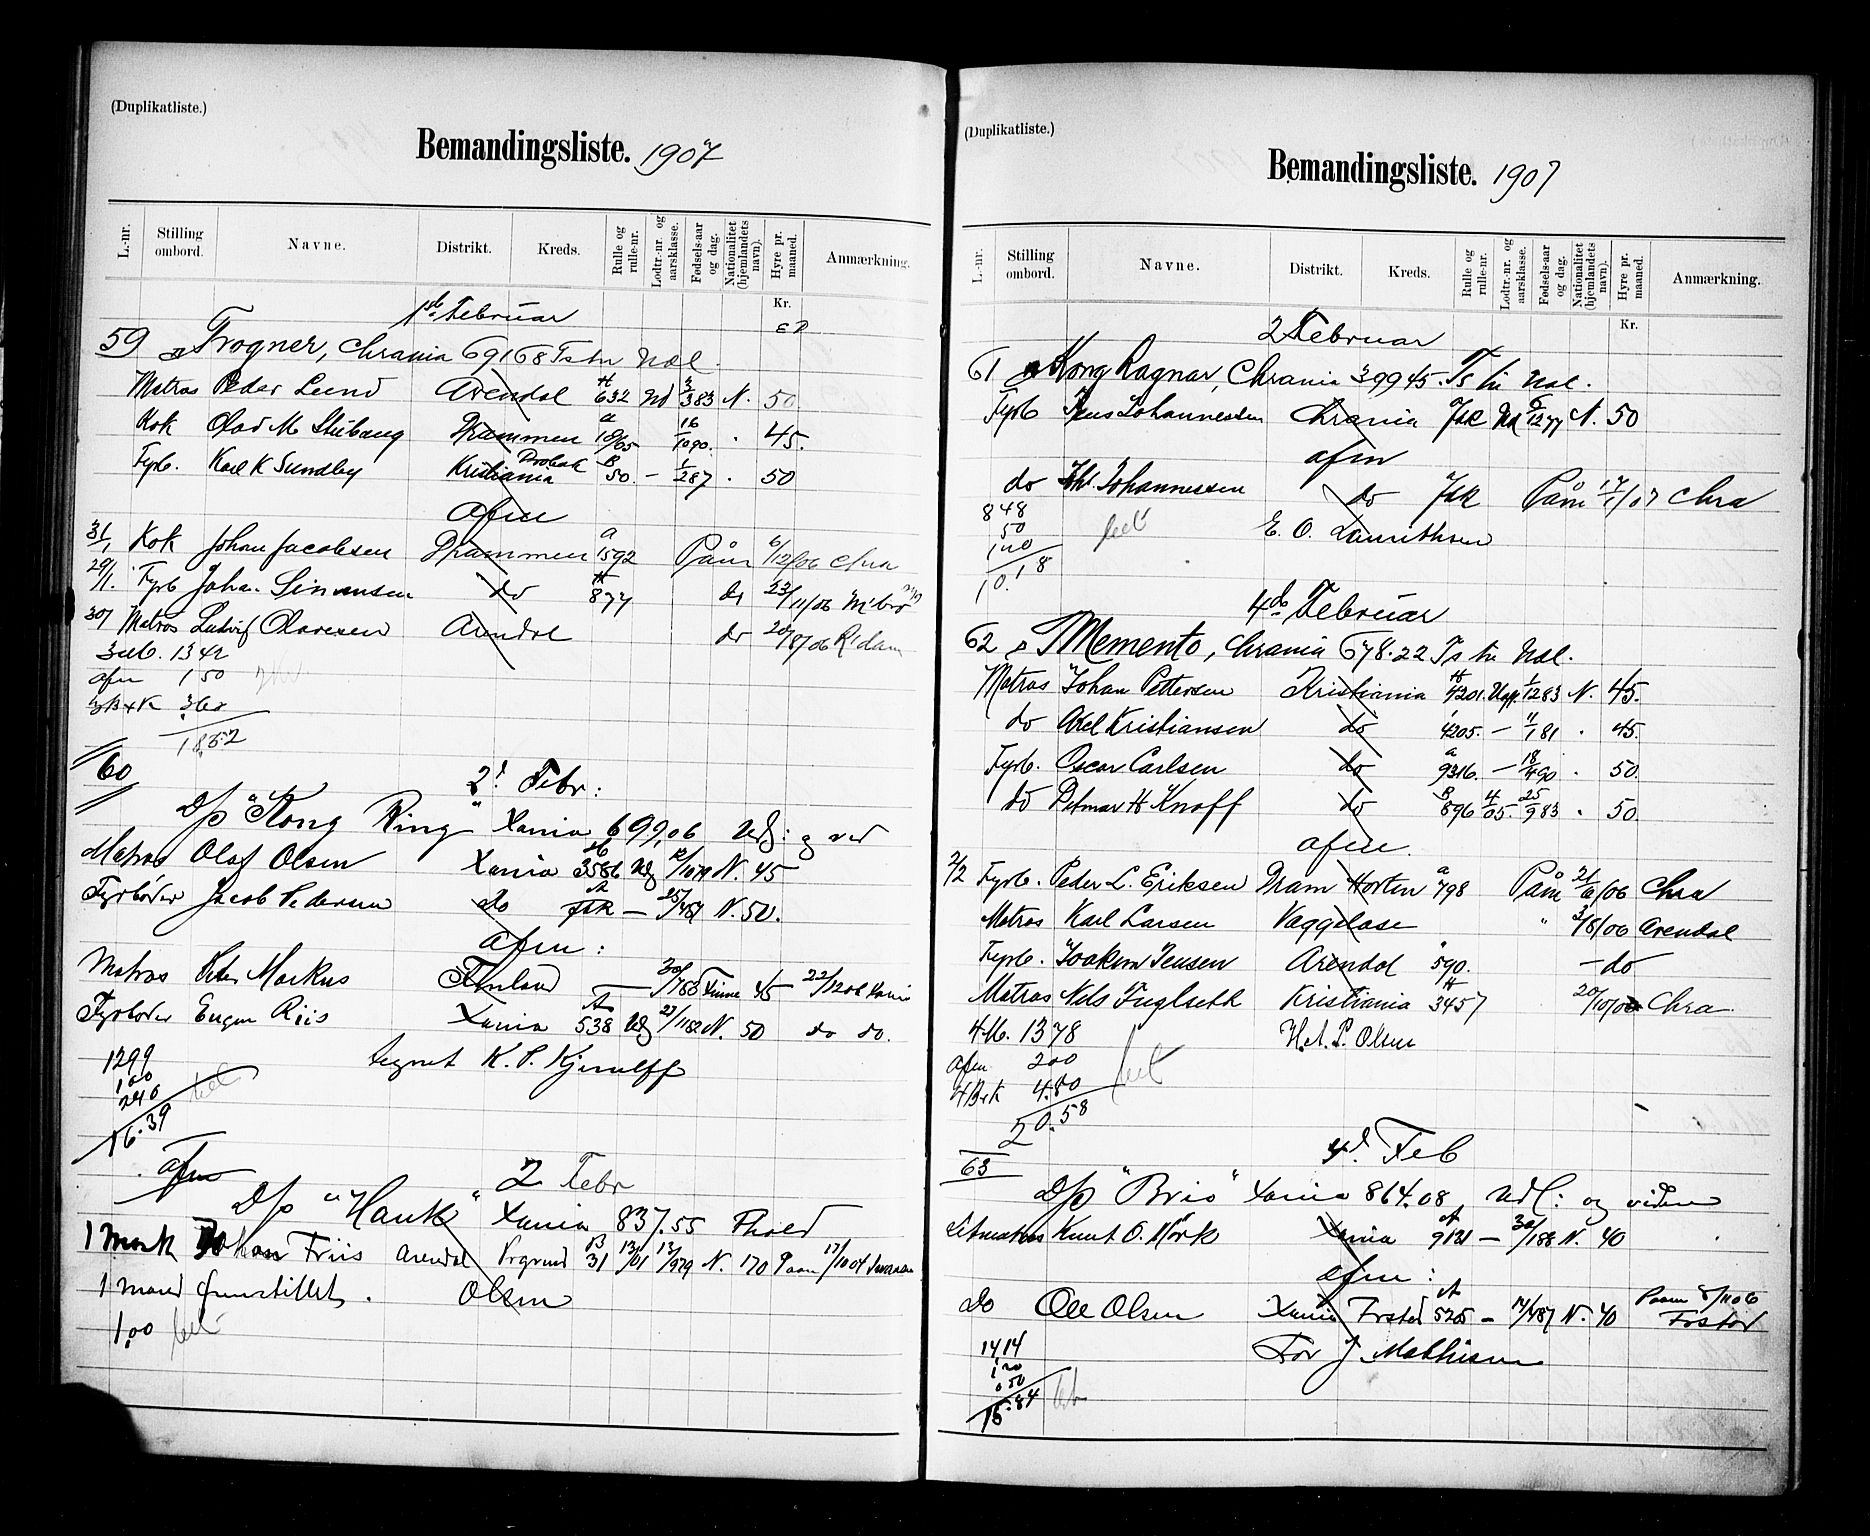 (Duplikatliste.)
Bemandingsliste. 1907
L.-nr.
Stilling ombord.
Navne.
Distrikt.
Kreds.
Rulle og rulle-nr.
Lodtr.-nr. og aarsklasse.
Fødsels-aar og dag.
Nationalitet (hjemlandets navn).
Hyre pr. maaned.
Anmærkning.
Kr.
1de Februar
59 Frogner, Chrania 69168 Ts tn Nal.
Matros Peder Lund Arendal 632 Nd 3/383 N. 50
Kok Olav M Stubang Drammen 10/65 16/1090 . 45.
Fyrb. Karl K Sundby Kristiania Drobak 50. - 1/287 . 50
afm
31/1 Kok Johan Jacobsen Drammen 1592 Påm 6/12/06 Chra
29/1. Fyrb Joha. Simensen do 877 do 23/11/06
30/1 Matros Ludvig Olavesen Arendal do 20/8/06 R'dam
1342
afm 150
360
1852
60
2' Febr:
D/s "Kong Ring" Xania 699,06 Udl: og ved
Matros Olaf Olsen Xania 3586 Udg N. 45
Fyrbøder Jacob Pedersen do fsk - N. 50.
afm:
Matros Peter Markus Finland Finne 45 22/12 06
Fyrbøder Eugen Riis Xania 538 Udg 23/1182 N. 50 do do.
1299
100
240
16.39
tegnet K. P. Kjerulff
afm
2 Febr
D/s "Hauk" Xania 837.55
1 mask Johan Friis Arendal Prgrund 31 13/01 13/979 N. 170 Paam 17/10 04
1 mand frunstillet. Olsen
1,00 bet
(Duplikatliste.)
Bemandingsliste. 1907
L.-nr.
Stilling ombord.
Navne.
Distrikt.
Kreds.
Rulle og rulle-nr.
Lodtr.-nr. og aarsklasse.
Fødsels-aar og dag.
Nationalitet (hjemlandets navn).
Hyre pr. maaned.
Anmærkning.
Kr.
2 Februar
61 Kong Ragnar, Chrania 39945. Ts tn Nal.
Fyrb Jens Johannessen Chrania fsk Nd 6/1277 N. 50
afm
do Joh. Johannessen do fsk Påm 17/1/07 Chra
848
50
bet
E. O. Laurithsen
10.18
4de Februar
62 Memento, Chrania 678.22 Ts tn Nal.
Matros Johan Pettersen Kristiania 4201. 1/1283 N. 45.
do Axel Kristiansen do 4205. - 11/181 . 45.
Fyrb. Oscar Carlsen do 9316. - 18/490 . 50.
do Ditmar H Knoff do 896 4/05 25/983 . 50
afm.
2/2 Fyrb. Peder L. Eriksen Dram Horten 798 Påm 21/6/06 Chra
Matros Karl Larsen Vaggelase " 3/8/06 Arendal
Fyrb. Joakim Jensen Arendal 590. - do
Matros Nils Fuglseth Kristiania 3457 20/10/06 Chra
4 M. 1378
H. A. P. Olsen
afm 200
4 B+K 480
bet
20.58
63
4' Feb
D/s "Brio" Xania 864.08 Udl: og viden
Letmatros Knut O. Mörk Xania 9121 - 30/188 N. 40
afm:
do Ole Olsen Xania 5205 - 14/487 N. 40 Paam
For J Mathisen
1414
120
050
15.84